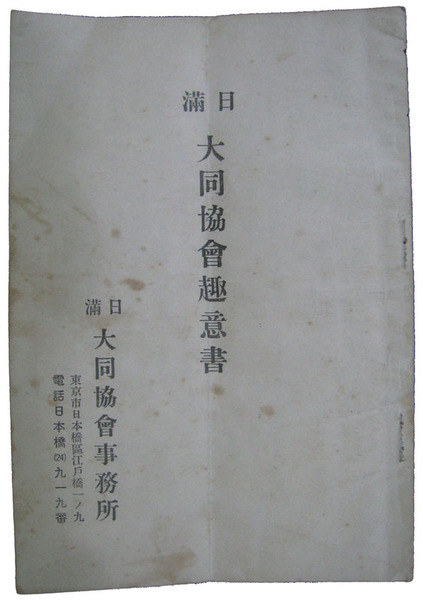 日滿
大同協會趣意書
日滿
大同協會事務所
東京市日本橋區江戸橋一ノ九
電話日本橋(24)九一九番